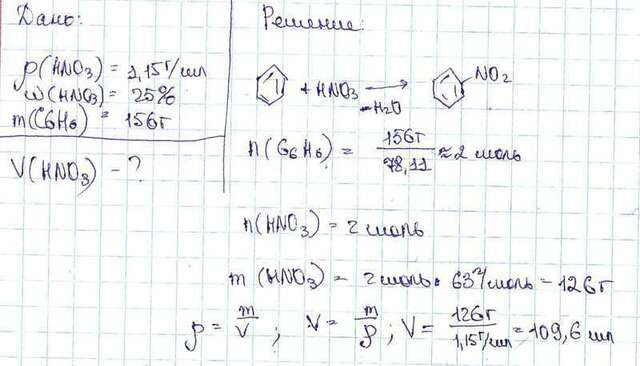 Дано:
ρ(HNO3) = 1,15г/мл
ω(HNO3) = 25%
m(C6H6) = 156г
V(HNO3) - ?
Решение:
+ HNO3 → NO2
-H2O
n(C6H6) = 156г/78,11 ≈ 2 моль
n(HNO3) = 2 моль
m(HNO3) = 2 моль • 63г/моль = 126г
ρ = m/V ; V = m/ρ ; V = 126г/1,15г/мл = 109,6 мл